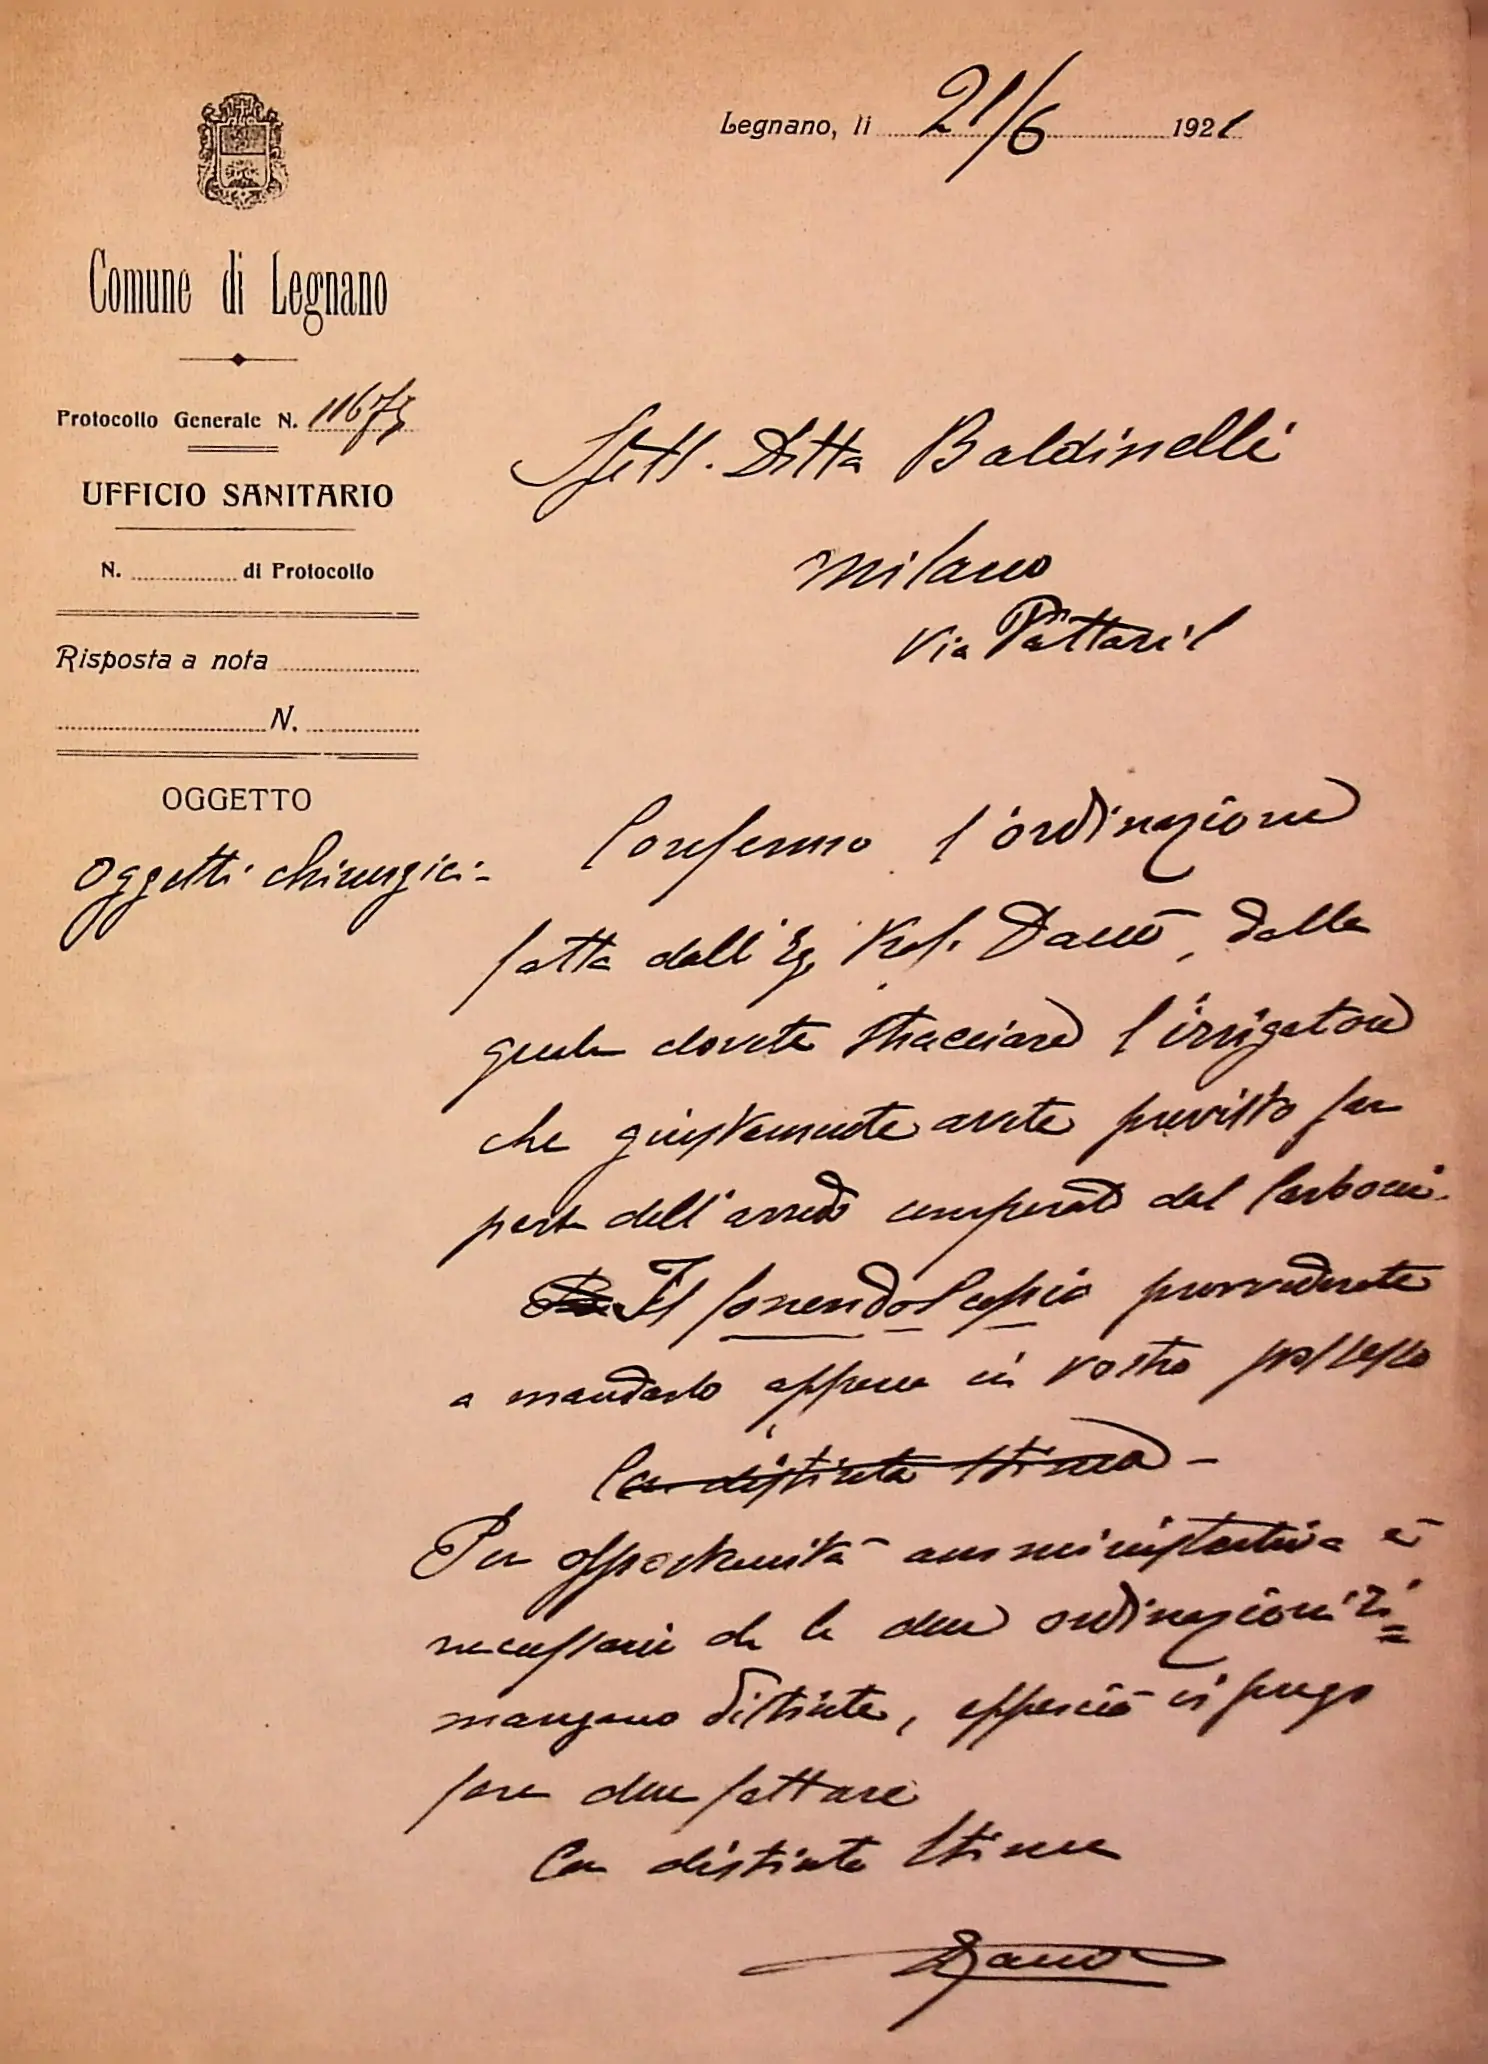 Legnano, li 21/6 1921
Comune di Legnano
Protocollo Generale N. 11675
UFFICIO SANITARIO
N. di Protocollo
Risposta a nota
N.
OGGETTO
Oggetti chirurgici.-
Spett. Ditta Baldinelli
Milano
Via Pattari 1
Confermo l'ordinazione
fatta dall'Eg. Prof. Daccò, dalla
quale dovete stracciare l'irrigatore
che giustamente avete previsto far
parte dell'arredo comperato dal
Il fonendoscopio provvederete
a mandarlo appena in vostro possesso
Con distinta stima -
Per opportunità amministrativa è
necessario che le due ordinazioni ri=
mangano distinte, epperciò vi prego
fare due fatture
Con distinta stima